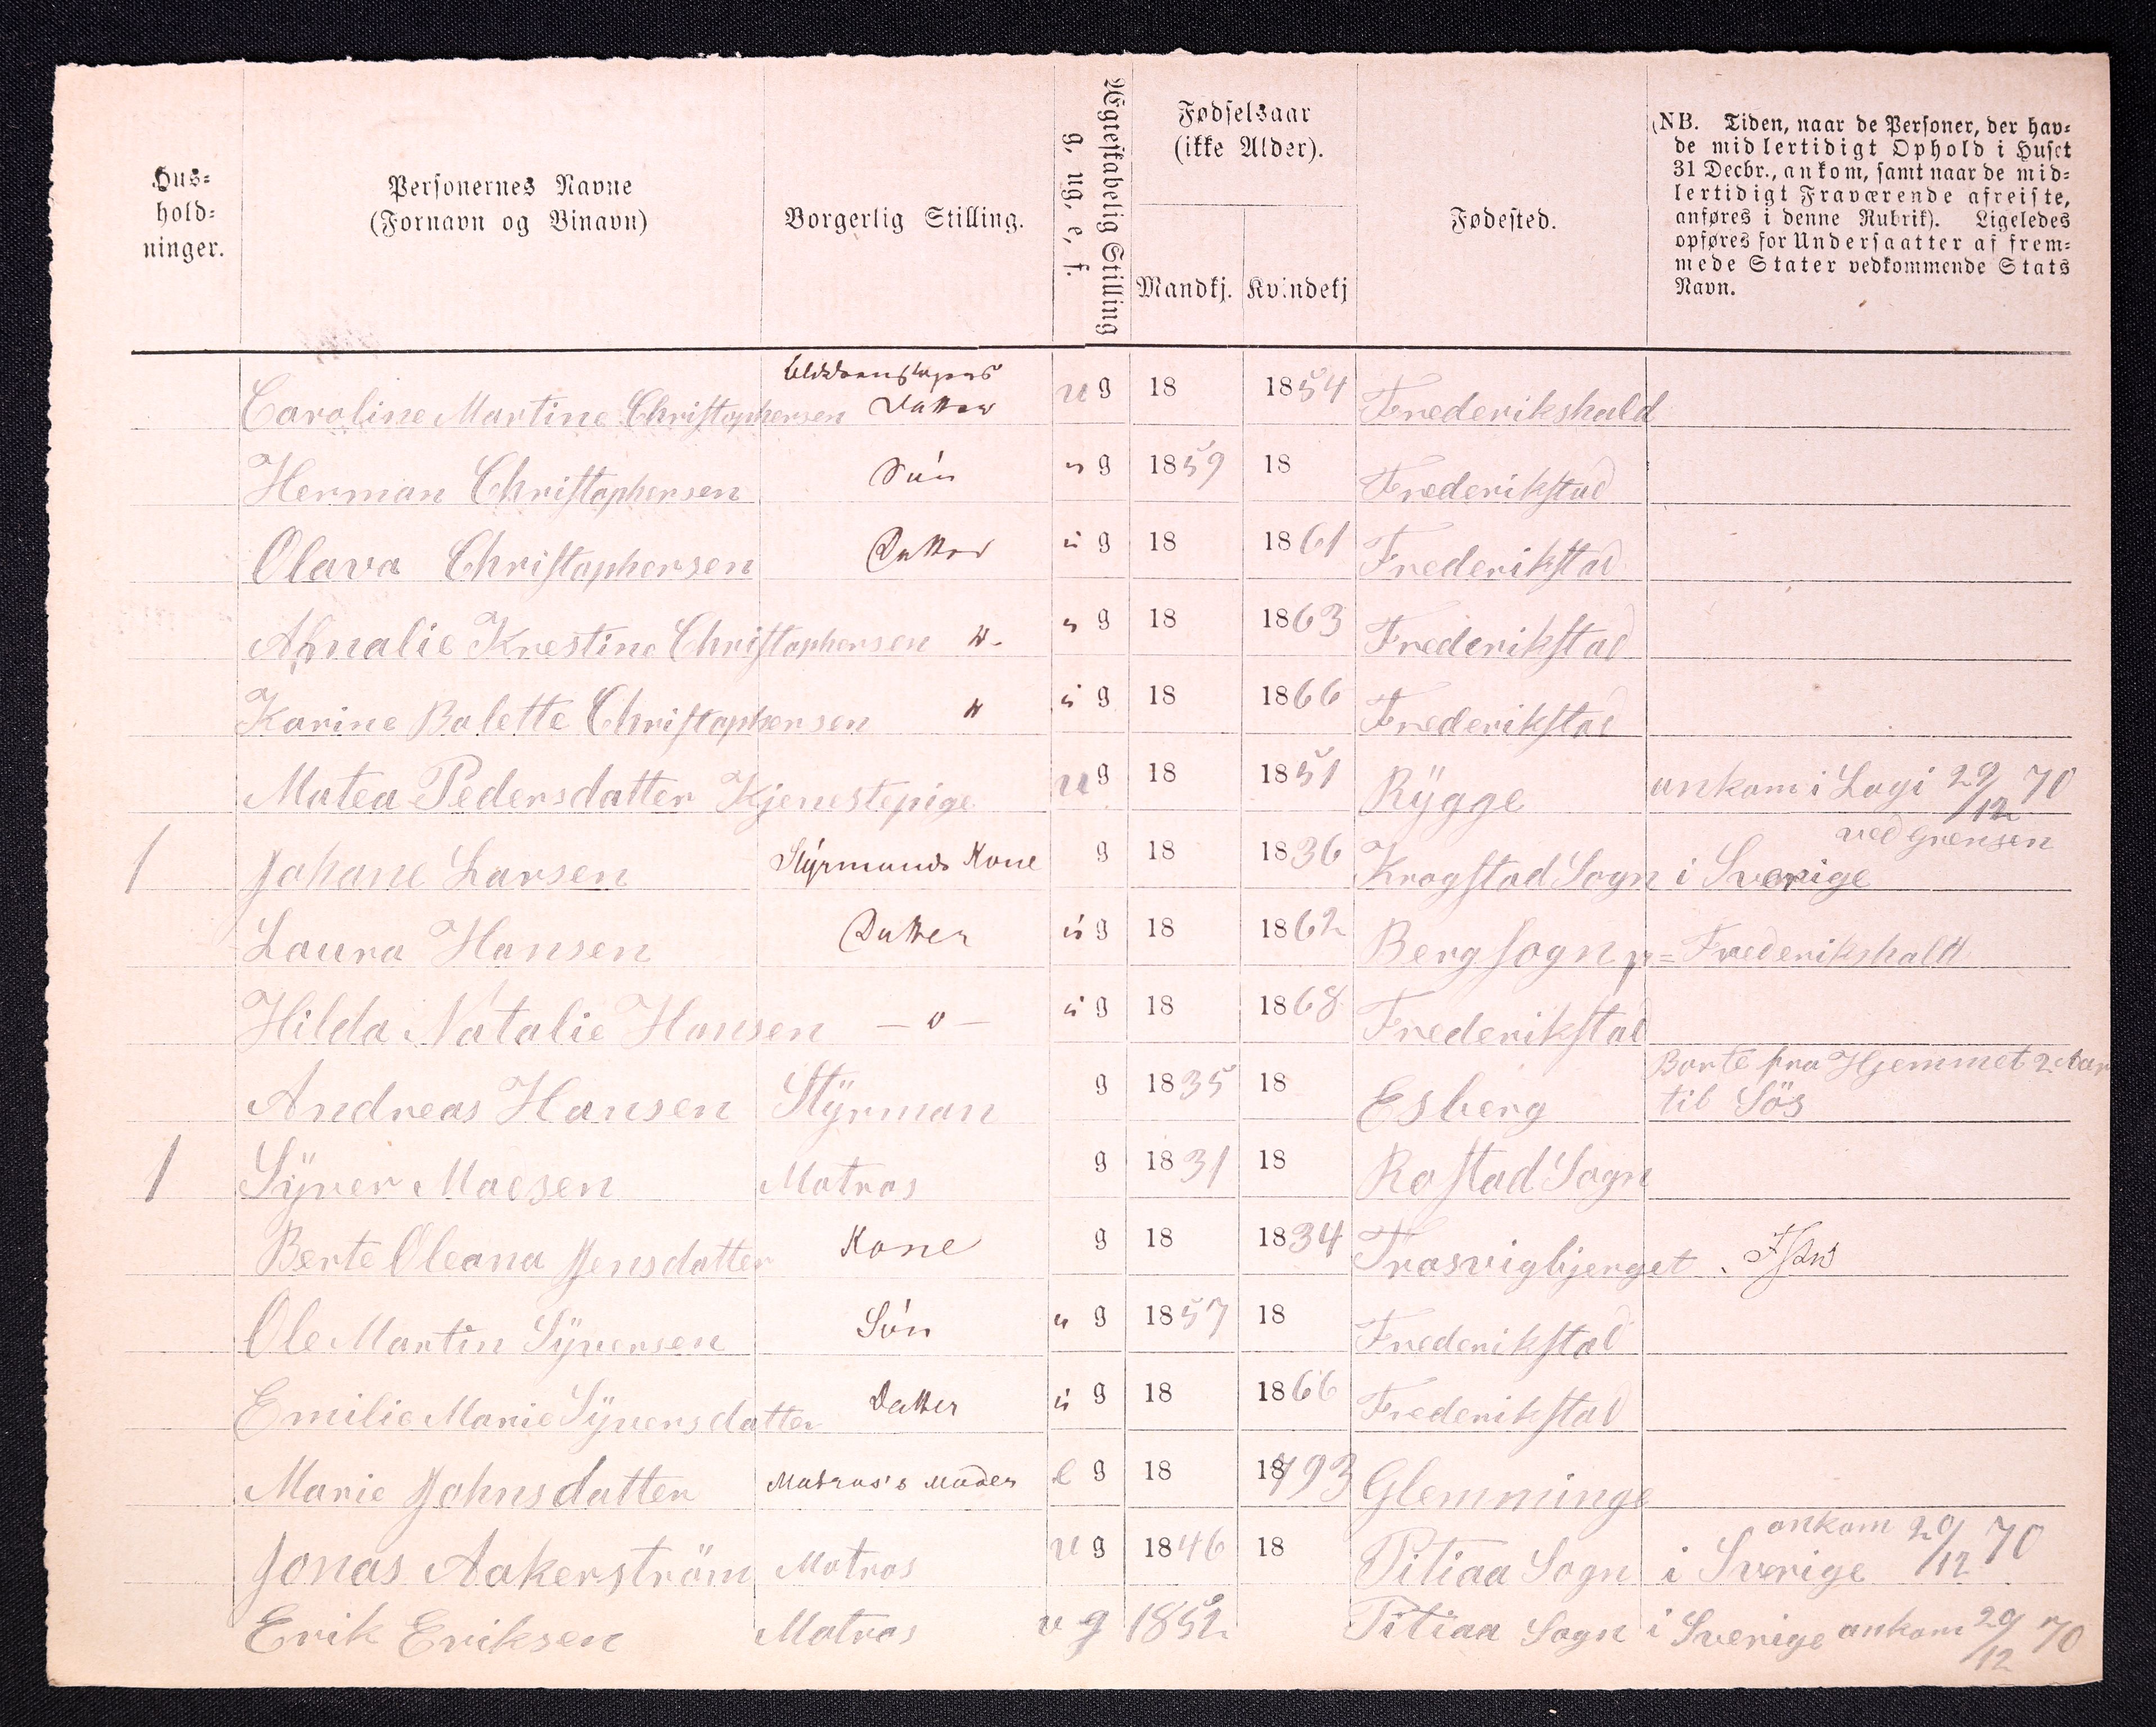 Hus-
hold-
ninger.
Personernes Navne
(Fornavn og Binavn)
Borgerlig Stilling.
Ægteskabelig Stilling
g, ug, e, f.
Fødselsaar
(ikke Alder).
Mandkj. Kvindekj
Fødested.
(NB. Tiden, naar de Personer, der hav-
de midlertidigt Ophold i Huset
31 Decbr., ankom, samt naar de mid-
lertidigt Fraværende afreiste,
anføres i denne Rubrik). Ligeledes
opføres for Undersaatter af frem-
mede Stater vedkommende Stats
Navn.
Caroline Martine Christophersen Datter u g 18 1854 Frederikshald
Herman Christophersen Sön u g 1859 18 Frederikstad
Olava Christophersen Datter u g 18 1861 Frederikstad
Amalie Krestine Christophersen " u g 18 1863 Frederikstad
Karine Bolette Christophersen " u g 18 1866 Frederikstad
Matea Pedersdatter Tjenestepige u g 18 1851 Rÿgge ankom i Logi 29/12 70
1 Johane Larsen Stÿrmands Kone g 18 1836 Krogstad Sogn i Sverige ved Grensen
Laura Hansen Datter u g 18 1862 Berg Sogn p= Frederikshald
Hilda Natalie Hansen — " — u g 18 1868 Frederikstad
Andreas Hansen Stÿrman g 1835 18 Esberg Borte fra Hjemmet 2 Aar
til Sös
1 Sÿver Maesen Matros g 1831 18 Rastad Sogn
Berte Oleana Jensdatter Kone g 18 1834 Trosvigbjerget
Ole Martin Sÿversen Sön u g 1857 18 Frederikstad
Emilie Marie Sÿversdatter Datter u g 18 1866 Frederikstad
Marie Johnsdatter Matros's Moder e g 18 1793 Glemminge
Jonas Aakerström Matros u g 1846 18 Pitiaa Sogn i Sverige ankom 29/12 70
Erik Eriksen Matros u g 1852 Pitiaa Sogn i Sverige ankom 29/12 70